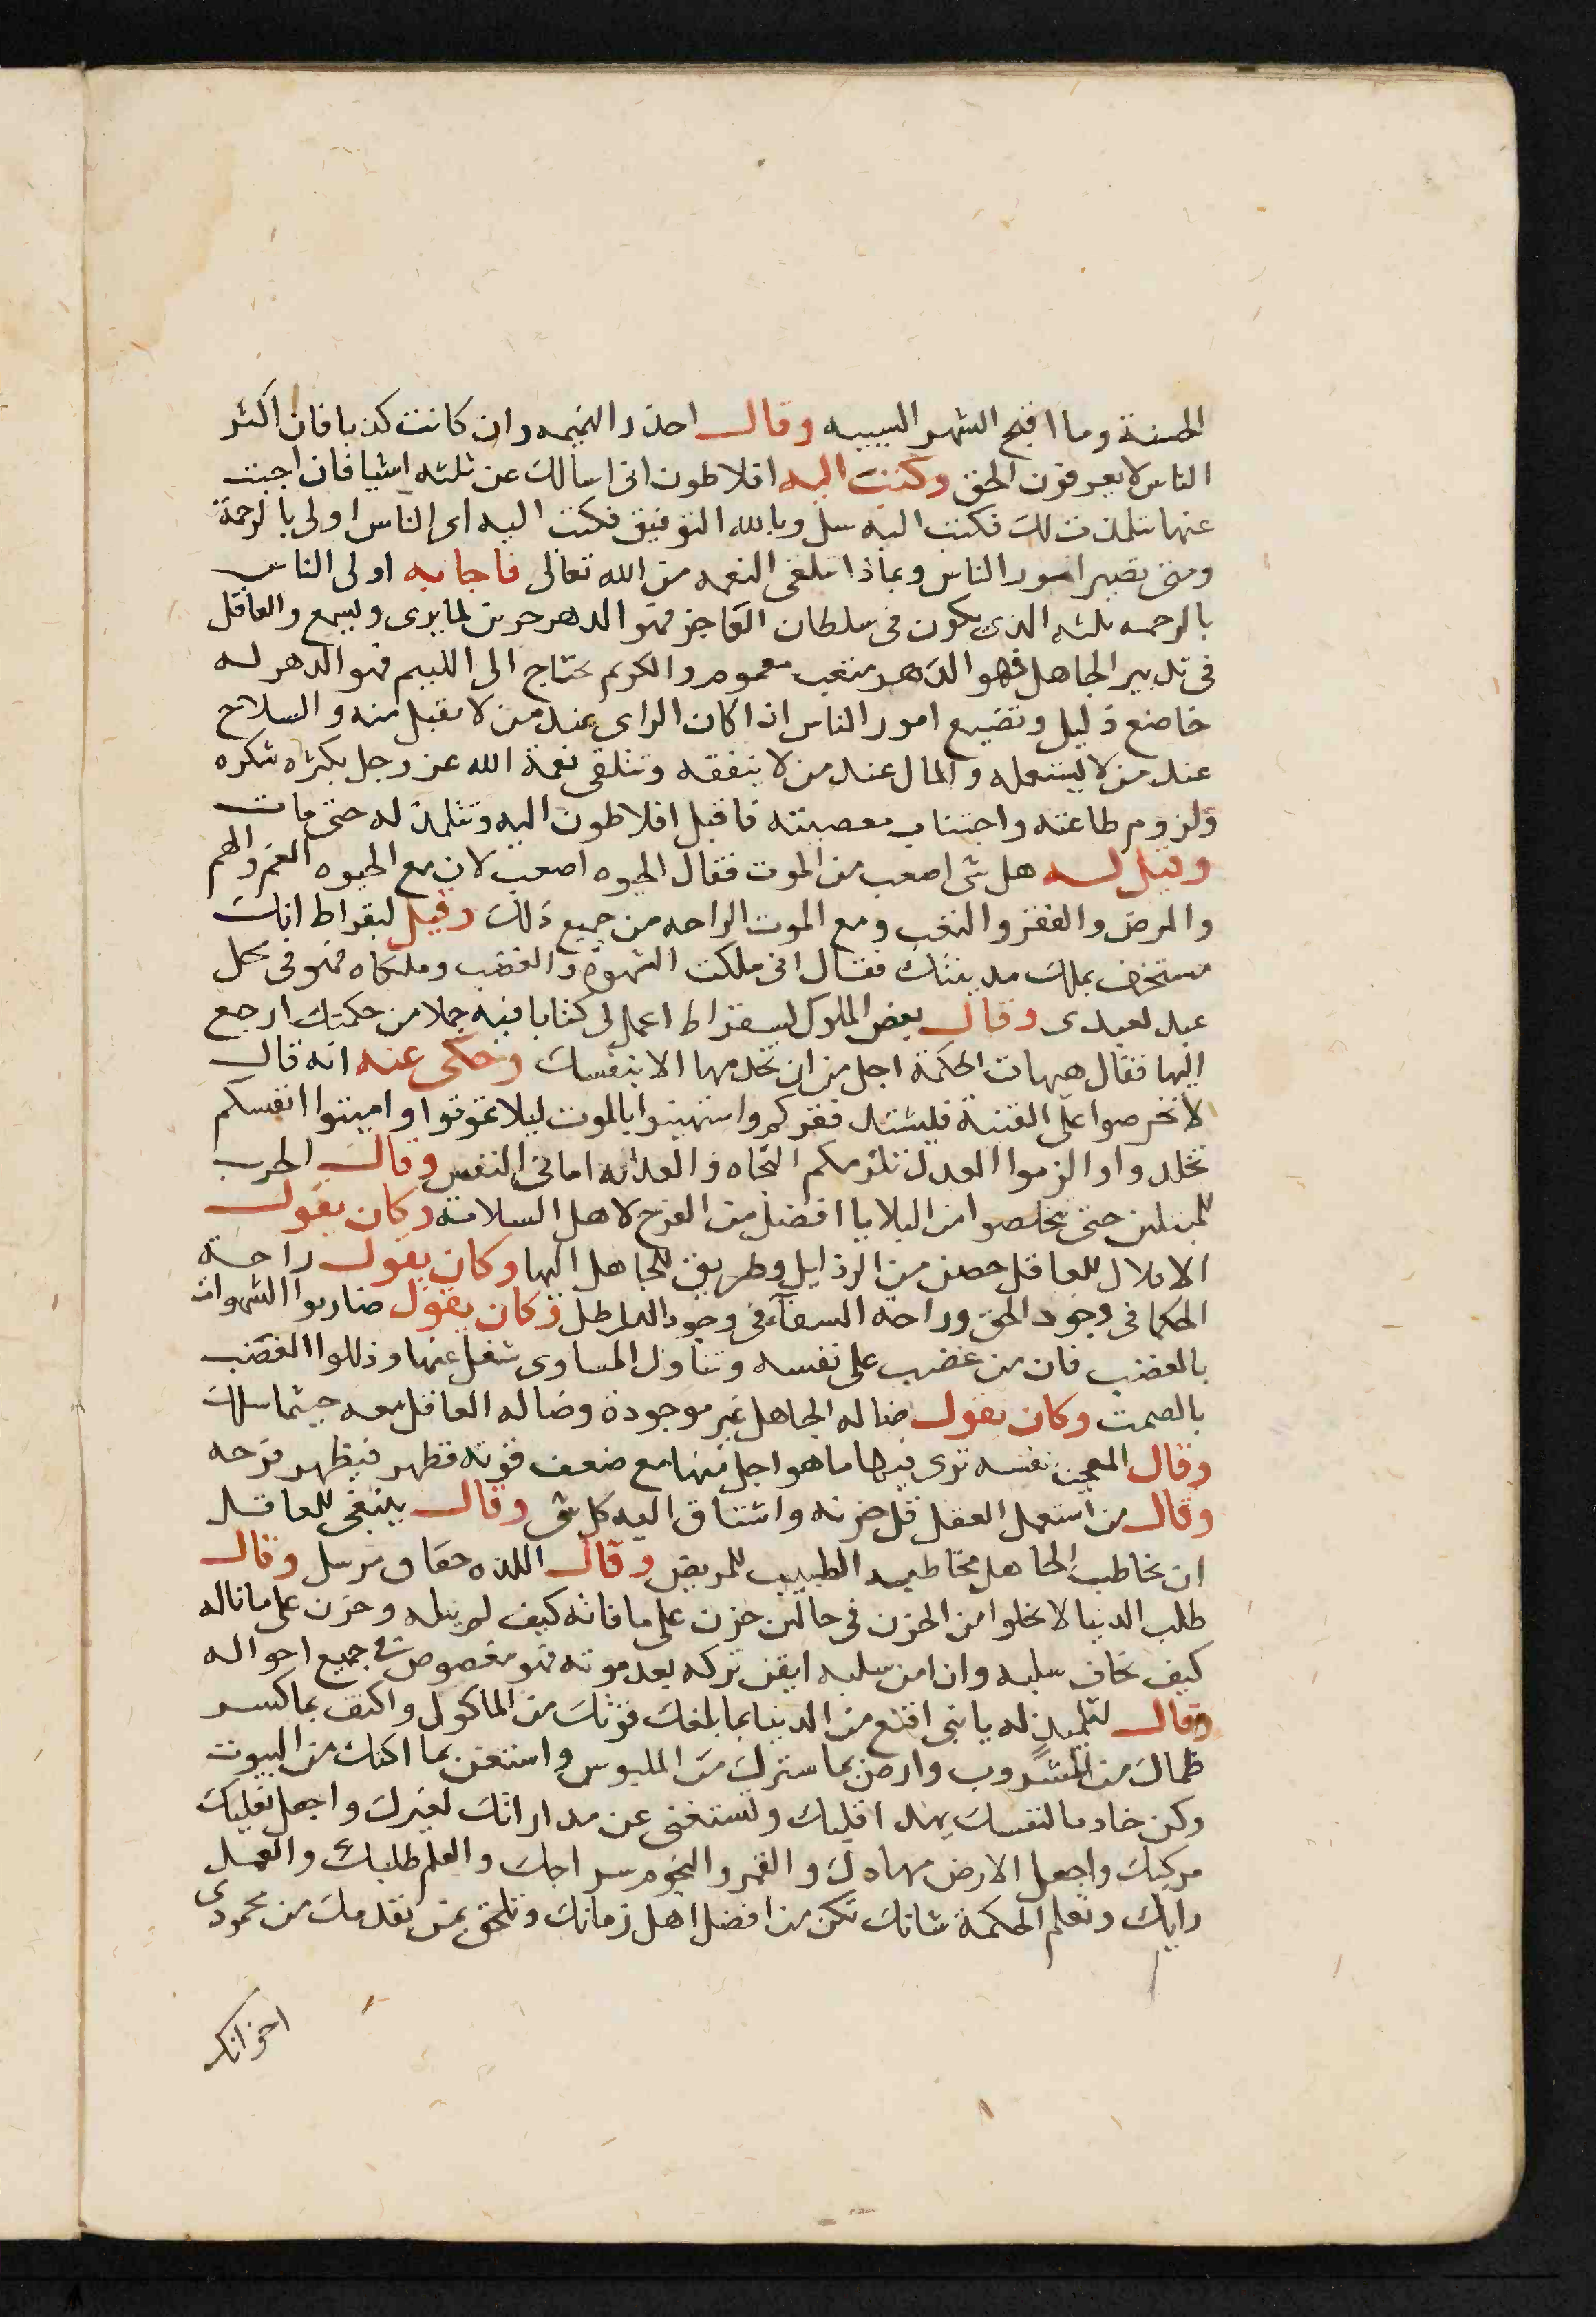 الحسنة وما اقبح الشهر السييه وقال احذر النميمه وان كانت كذبا فان اكثر
الناس لا يعرفون الحق وكتب اليه افلاطون انى اسالك عن ثلثه اشيا فان اجبت
عنها تتلمذت لك فكتب اليه سل وبالله التوفيق فكتب اليه اى الناس اولى بالرحمة
ومتى تضيع امور الناس وبماذا تتلقى النعمه من الله تعالى فاجابه اولى الناس
بالرحمه ثلثه الذى يكون فى سلطان الفاجر فهو الدهر حزين لما يرى ويسمع والعاقل
فى تدبير الجاهل فهو الدهر متعب مغموم والكريم يحتاج الى اللييم فهو الدهر له
خاضع ذليل وتضيع امور الناس اذا كان الراى عند من لا يقبل منه والسلاح
عند من لا يستعمله والمال عند من لا ينفقه وتتلقى نعمة الله عز وجل بكثره شكره
ولزوم طاعته واجتناب معصيته فاقبل افلاطون اليه وتتلمذ له حتى مات
وقيل له هل شى اصعب من الموت فقال الحيوه اصعب لان مع الحيوه الغم والهم
والمرض والفقر والتعب ومع الموت الراحه من جميع ذلك وقيل لبقراط انك
مستخف بملك مدينتك فقال انى ملكت الشهوة والغضب وملكاه فهو فى محل
عبد لعبدى وقال بعض الملوك لسقراط اعمل لى كتابا فيه جملا من حكمتك ارجع
اليها فقال هيهات الحكمة اجل من ان تخدمها الا بنفسك وحكى عنه انه قال
لا تحرصوا على القنية فيشتد فقركم واستهينوا بالموت ليلا تموتوا واميتوا انفسكم
تخلدوا والزموا العدل تلزمكم النجاه والعداله امانى النفس وقال الحرب
للمبتلين حتى يخلصوا من البلايا افضل من الفرح لاهل السلامة وكان يقول
الاقلال للعاقل حصن من الرذايل وطريق للجاهل اليها وكان يقول راحة
الحكما فى وجود الحق وراحة السفآء فى وجود الباطل وكان يقول ضاربوا الشهوات
بالغضب فان من غضب على نفسه وتناول المساوى شغل عنها وذللوا الغضب
بالصمت وكان يقول ضاله الجاهل غير موجودة وضاله العاقل معه حيثما سلك
وقال المعجب نفسه ترى فيها ما هو اجل منها مع ضعف قوته فظهر فيظهر فرحه
وقال من استعمل العقل قل حزنه واشتاق اليه كل شى وقال ينبغى للعاقل
ان يخاطب الجاهل مخاطبه الطبيب للمريض وقال اللذه خناق من عسل وقال
طلب الدنيا لا يخلوا من الحزن فى حالين حزن على ما فاته كيف لم ينله وحزن على ما ناله
كيف يخاف سلبه وان امن سلبه ايقن تركه بعد موته فهو مغصوص فى جميع احواله
وقال لتلميذ له يا بنى اقنع من الدنيا بما بلغك قوتك من الماكول واكتف بما كسر
ظماك من المشروب وارض بما سترك من الملبوس واستغن بما اكنك من البيوت
وكن خادما لنفسك يهد اقلبك وتستغنى عن مداراتك لغيرك واجعل نعليك
مركبك واجعل الارض مهادك والقمر والنجوم سراجك والعلم طلبك والعمل
رايك وتعلم الحكمة شانك تكن من افضل اهل زمانك وتلحق بمن تقدمك من محمودى
اخوانك